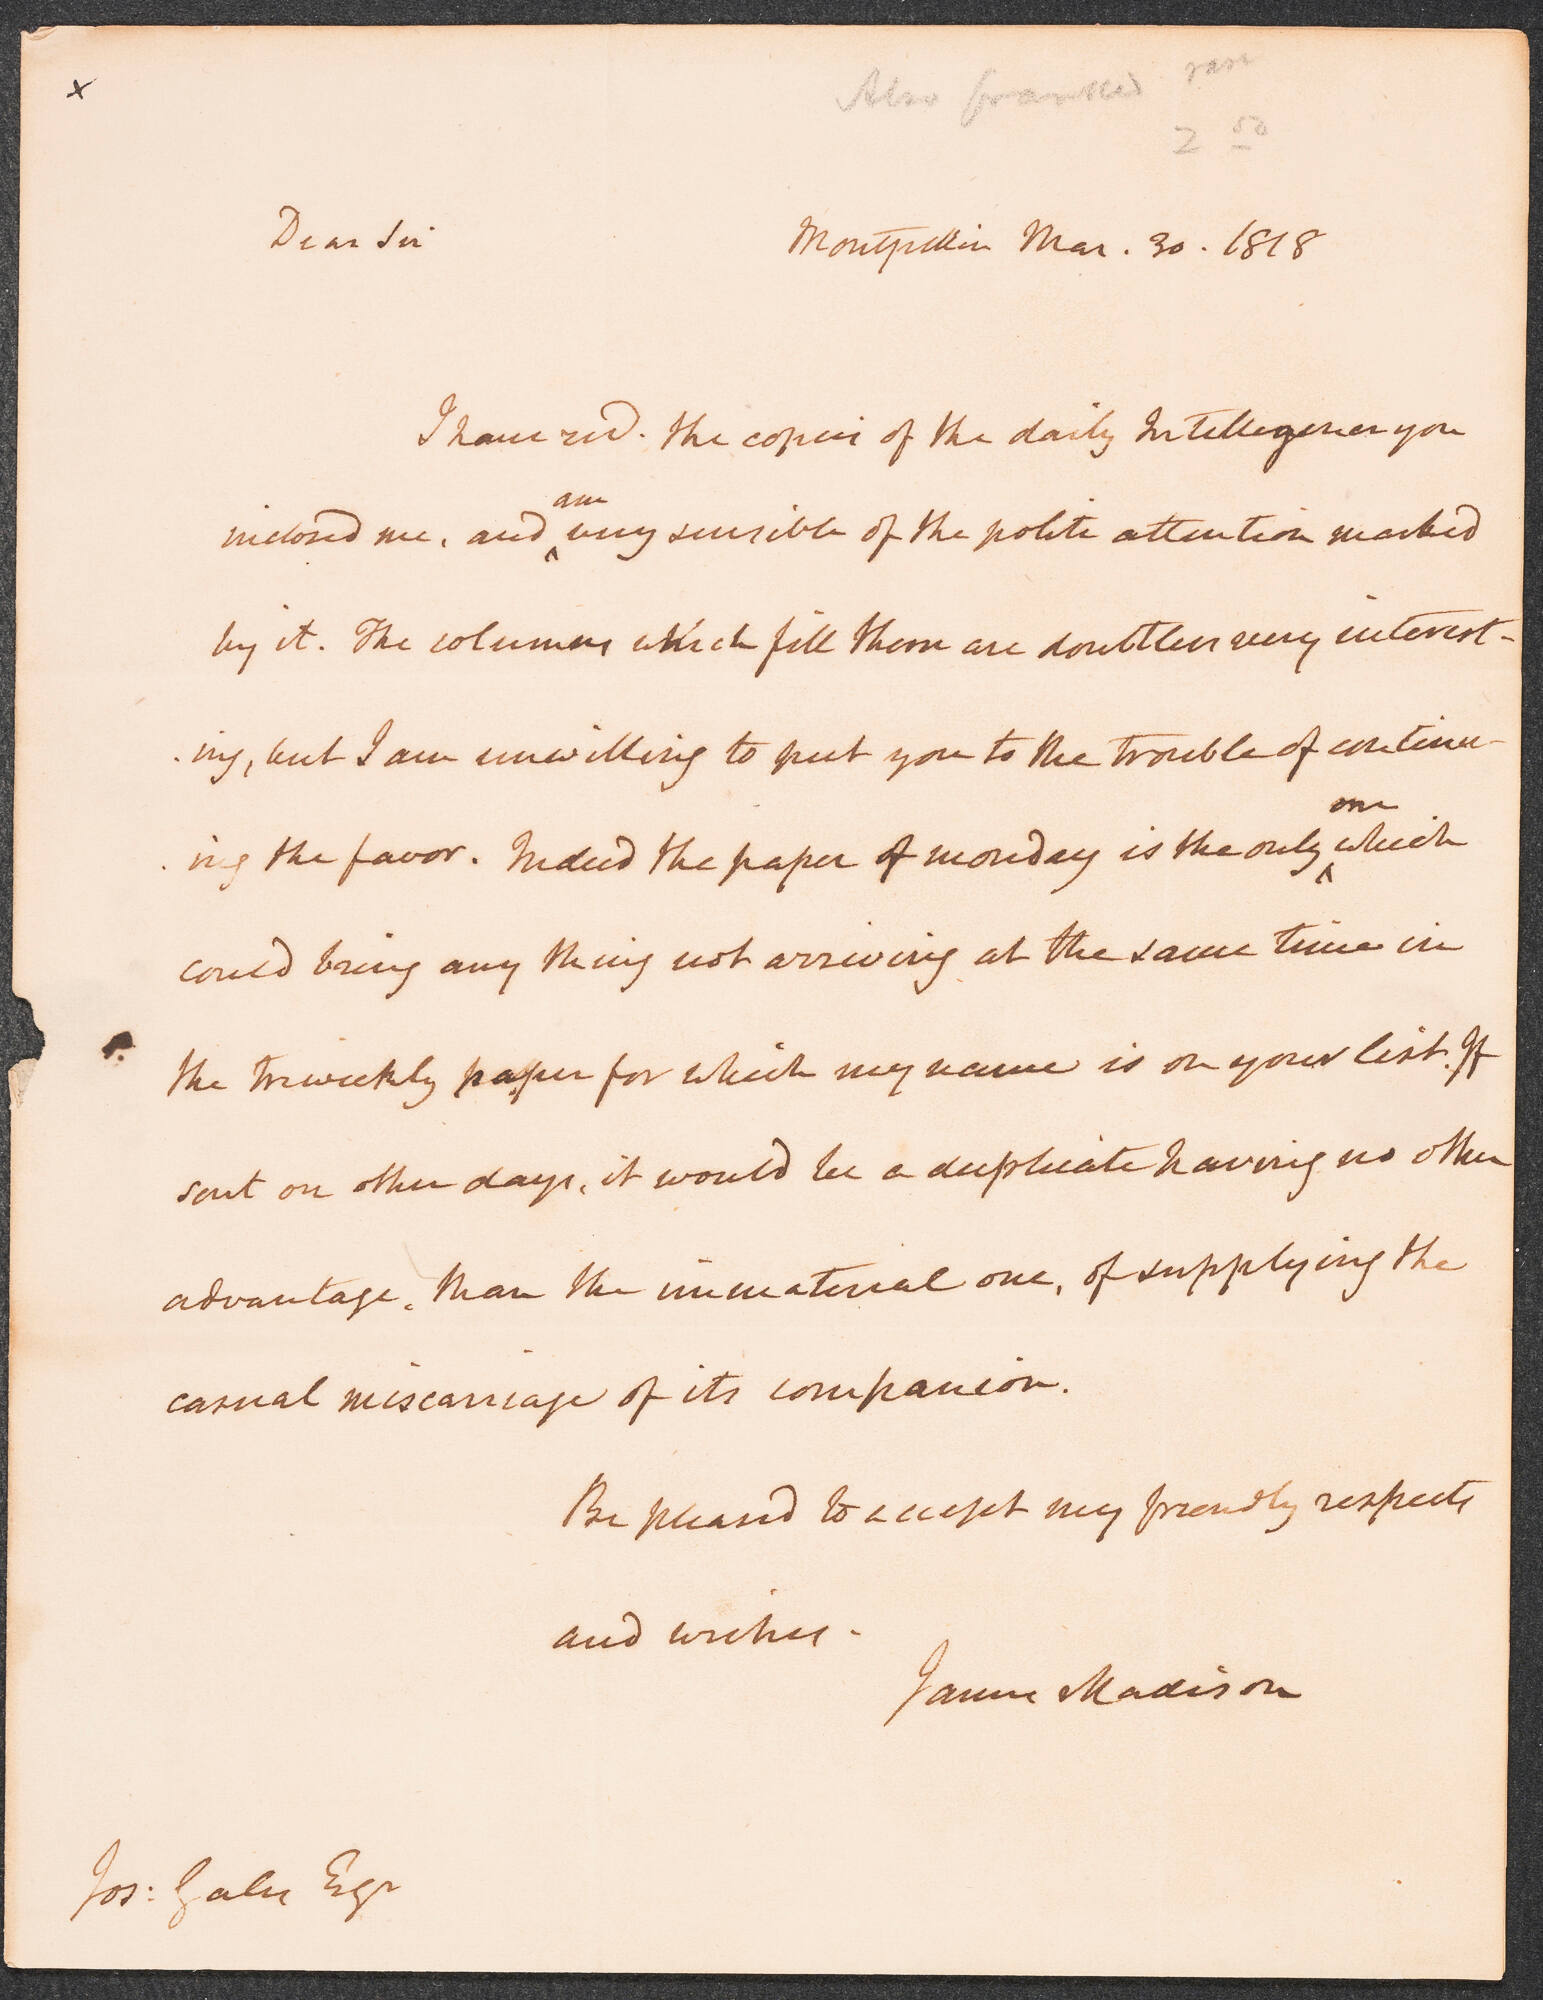 x
Also franked rare
2 50
Dear Sir
Montpellier Mar. 30. 1818
I have recd. the copies of the daily Intelligencer you
inclosed me, and am very sensible of the polite attention marked
by it. The columns which fill them are doubtless very interest-
ing, but I am unwilling to put you to the trouble of continu-
ing the favor. Indeed the paper of monday is the only one which
could bring any thing not arriving at the same time in
the triweekly paper for which my name is on your list. If
sent on other days, it would be a duplicate having no other
advantage, than the immaterial one, of supplying the
casual miscarriage of its companion.
Be pleased to accept my friendly respects
and wishes -
James Madison
Jos: Gales Esqr